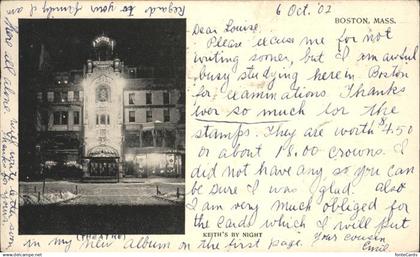 6 Oct. '02
BOSTON, MASS.
Dear Louise,
Please excuse me for not
writing sooner, but I am awful
busy studying here in Boston
for examinations. Thanks
ever so much for the
stamps. They are worth $4.50
or about 18.00 crowns. I
did not have any so you can
be sure I was glad. also
I am very much obliged for
the cards which I will put
in my new album on the first page. Your cousin
Emil.
(THEATRE)
KEITH'S BY NIGHT
Regard to your family I am
here all alone. Will write
soon